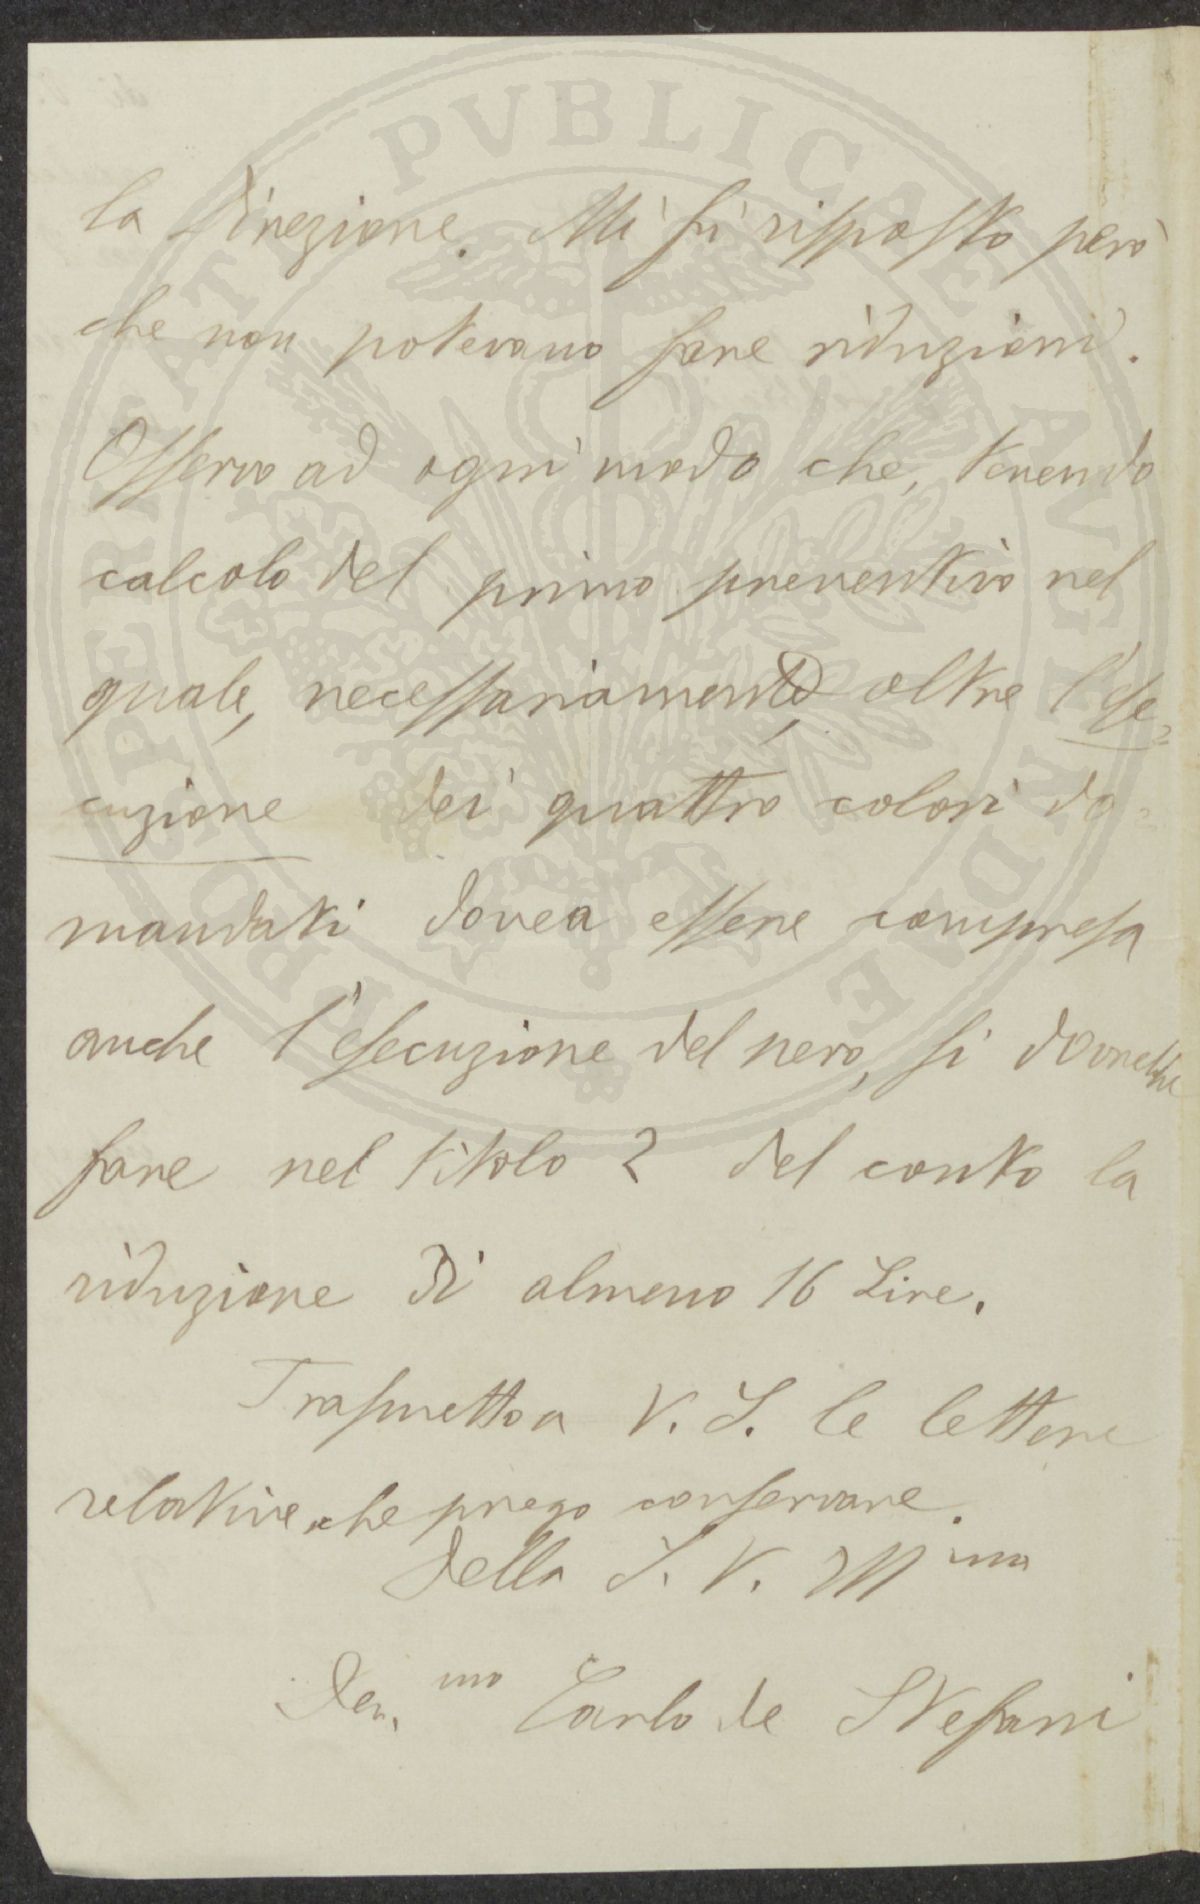 la Direzione. Mi si risposto però
che non potevano fare riduzioni.
Osservo ad ogni modo che, tenendo
calcolo del primo preventivo nel
quale, necessariamente, oltre l'ese=
cuzione dei quattro colori do=
mandati dovea essere compresa
anche l'esecuzione del nero, si dovrebbe
fare nel titolo 2 del conto la
riduzione di almeno 16 Lire.
Trasmetto a V. S. le lettere
relative, che prego conservare.
Della S. V. Ill ma
Dev. mo Carlo de Stefani
PROSPERITATI PVBLICAE AVGENDAE